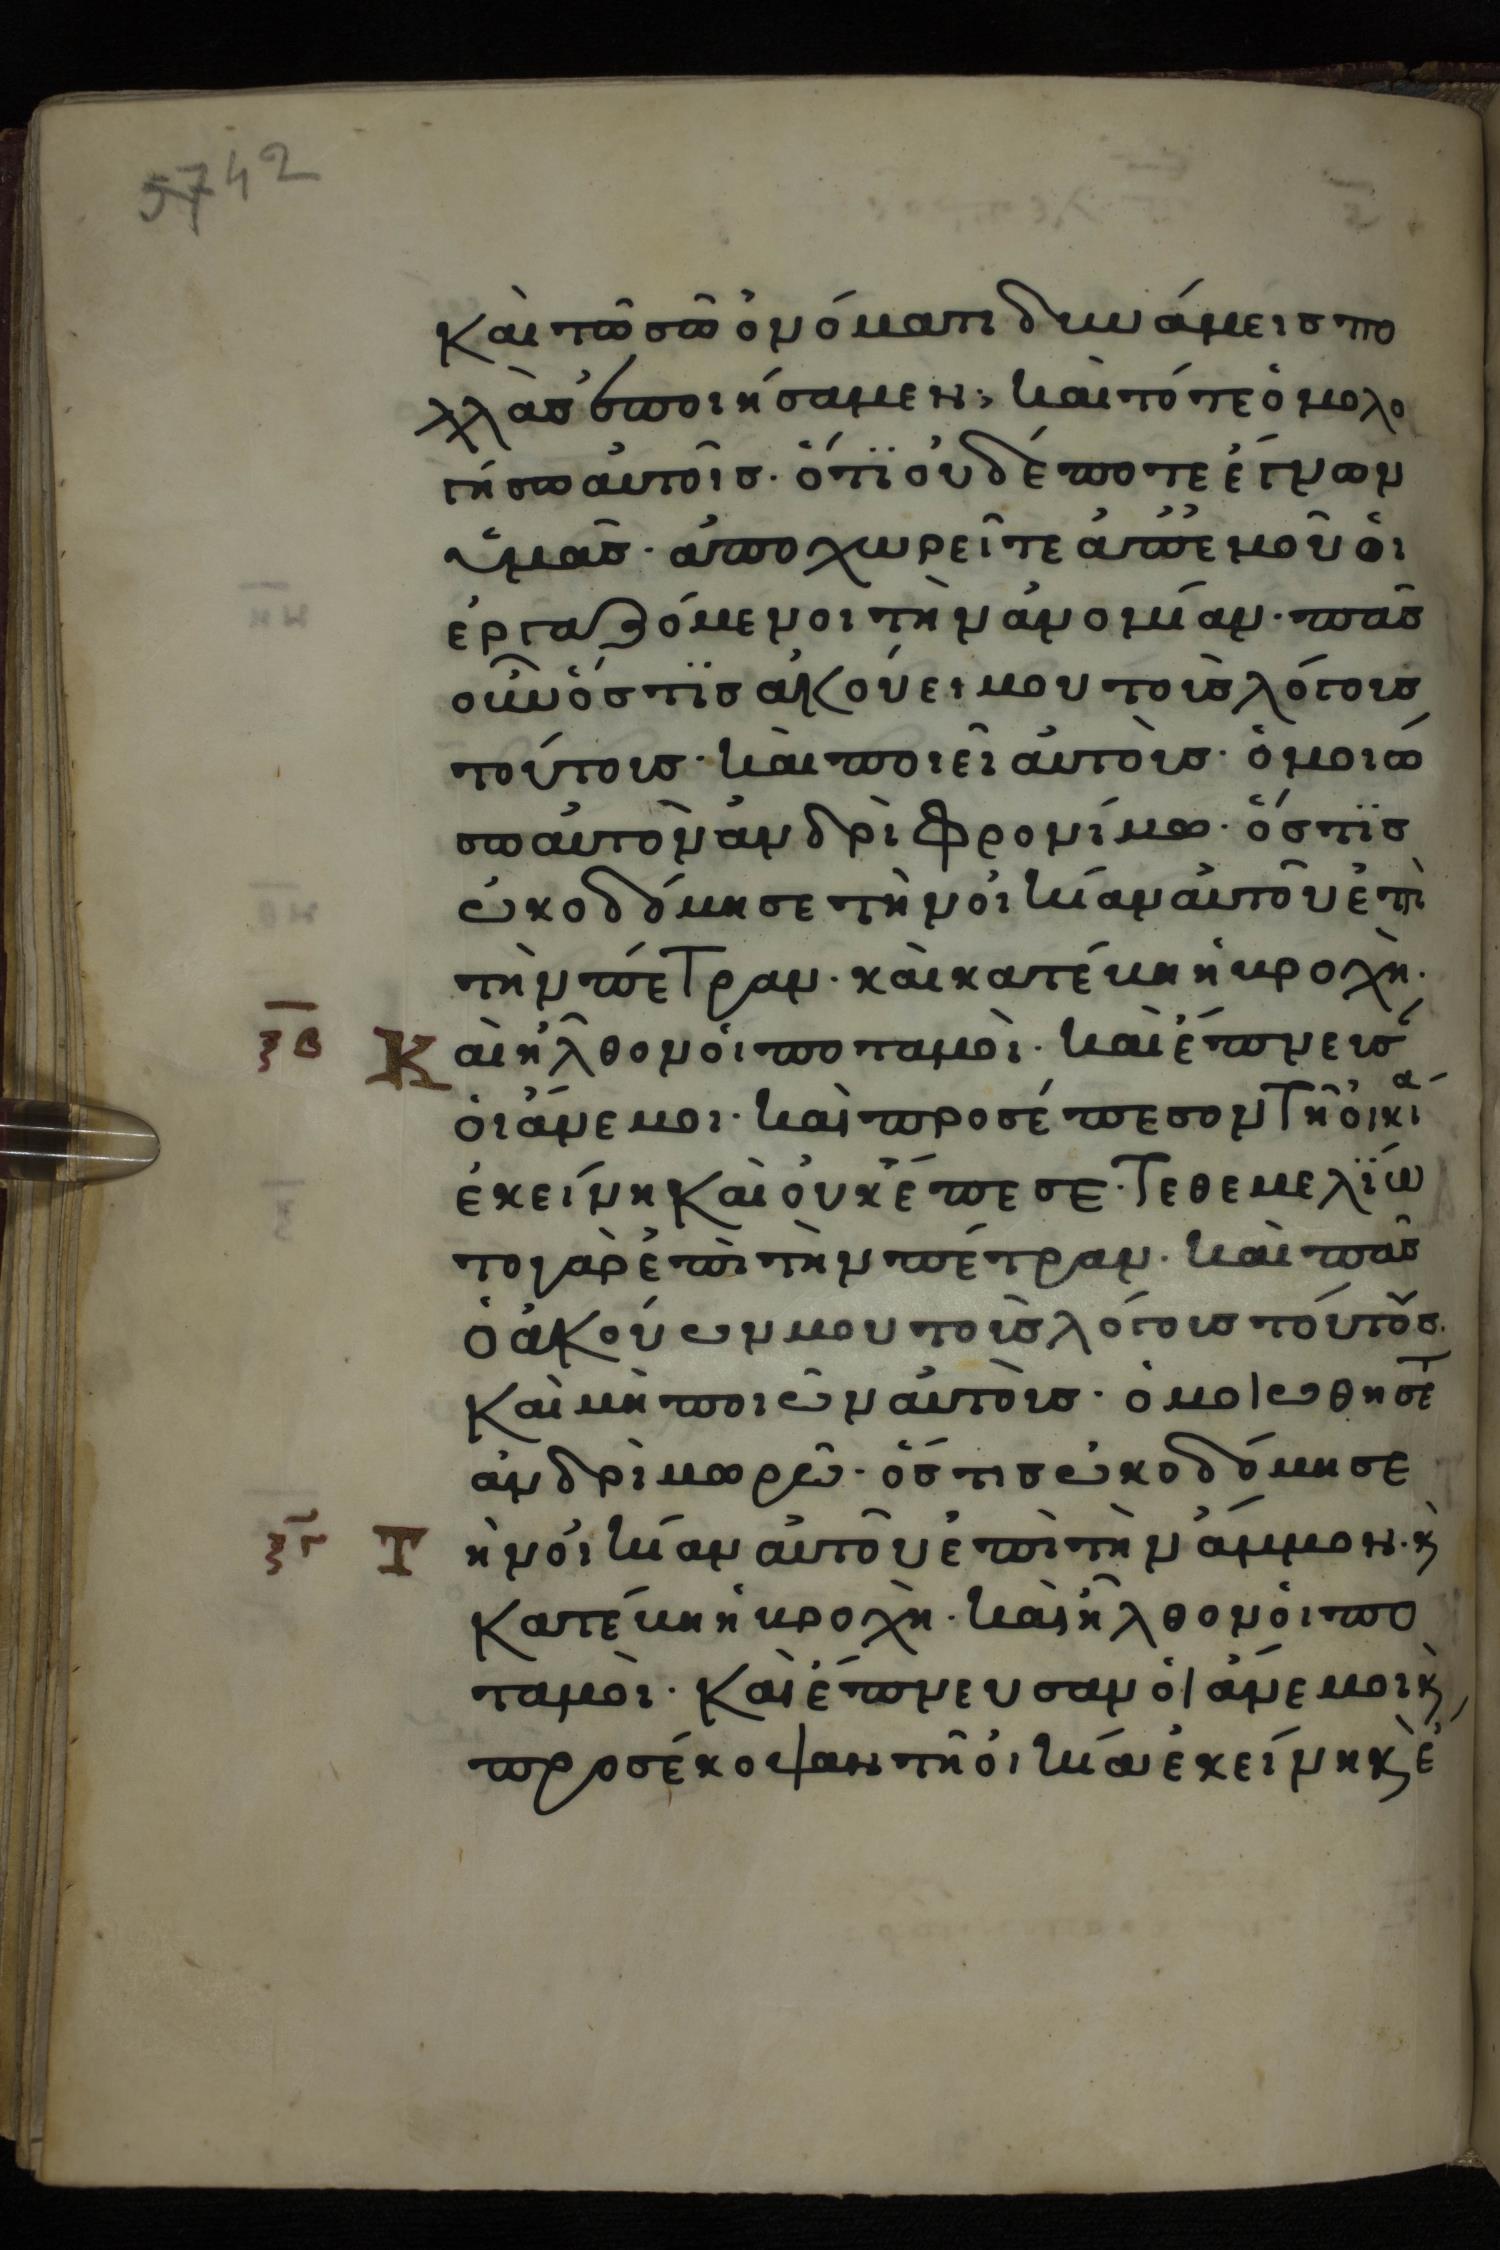 5742
καὶ τῶ σῶ ὀνόματι δυνάμεις πο
λλὰς ἐποιήσαμεν; καὶ τότε ὁμολο
γήσω αὐτοῖς· ὅτϊ οὐδέποτε ἔγνων
ὑμᾶς· ἀποχωρεῖτε ἀπ' ἐμοῦ οἱ
ἐργαζόμενοι τὴν ἀνομίαν· πᾶς
οὖν ὅστϊς ἀκούει μου τοὺς λόγους
τούτους· καὶ ποιεῖ αὐτοὺς· ὁμοιώ
σω αὐτὸν ἀνδρὶ φρονίμω· ὅστϊς
ὠκοδόμησε τὴν οἰκίαν αὐτοῦ ἐπὶ
τὴν πέτραν· καὶ κατέβη ἡ βροχὴ·
ξβ Καὶ ἦλθον οἱ ποταμοὶ· καὶ ἔπνευσ
οἱ ἄνεμοι· καὶ προσέπεσον τῆ οἰκίᾳ
ἐκείνη καὶ οὐκ ἔπεσε· τεθεμελΐω
το γὰρ ἐπὶ τὴν πέτραν· καὶ πᾶς
ὁ ἀκούων μου τοὺς λόγους τούτους·
καὶ μὴ ποιῶν αὐτοὺς· ὁμοιωθήσετ
ἀνδρὶ μωρῶ· ὅστις ὠκοδόμησε
ξγ Τὴν οἰκίαν αὐτοῦ ἐπὶ τὴν ἄμμον· κ
κατέβη ἡ βροχὴ· καὶ ἦλθον οἱ πο
ταμοὶ· καὶ ἔπνευσαν οἱ ἄνεμοι κ
προσέκοψαν τῆ οἰκία ἐκείνη κ ἔ